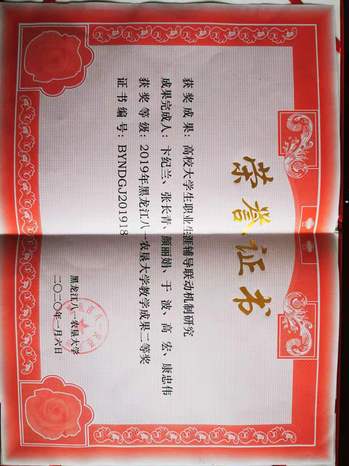 荣誉证书
获奖成果：高校大学生职业生涯辅导联动机制研究
成果完成人：卞纪兰、张长青、颜丽娟、于 波、高 宏、康忠伟
获奖等级：2019年黑龙江八一农垦大学教学成果二等奖
证书编号：BYNDGJ201918
黑龙江八一农垦大学
二〇二〇年一月六日